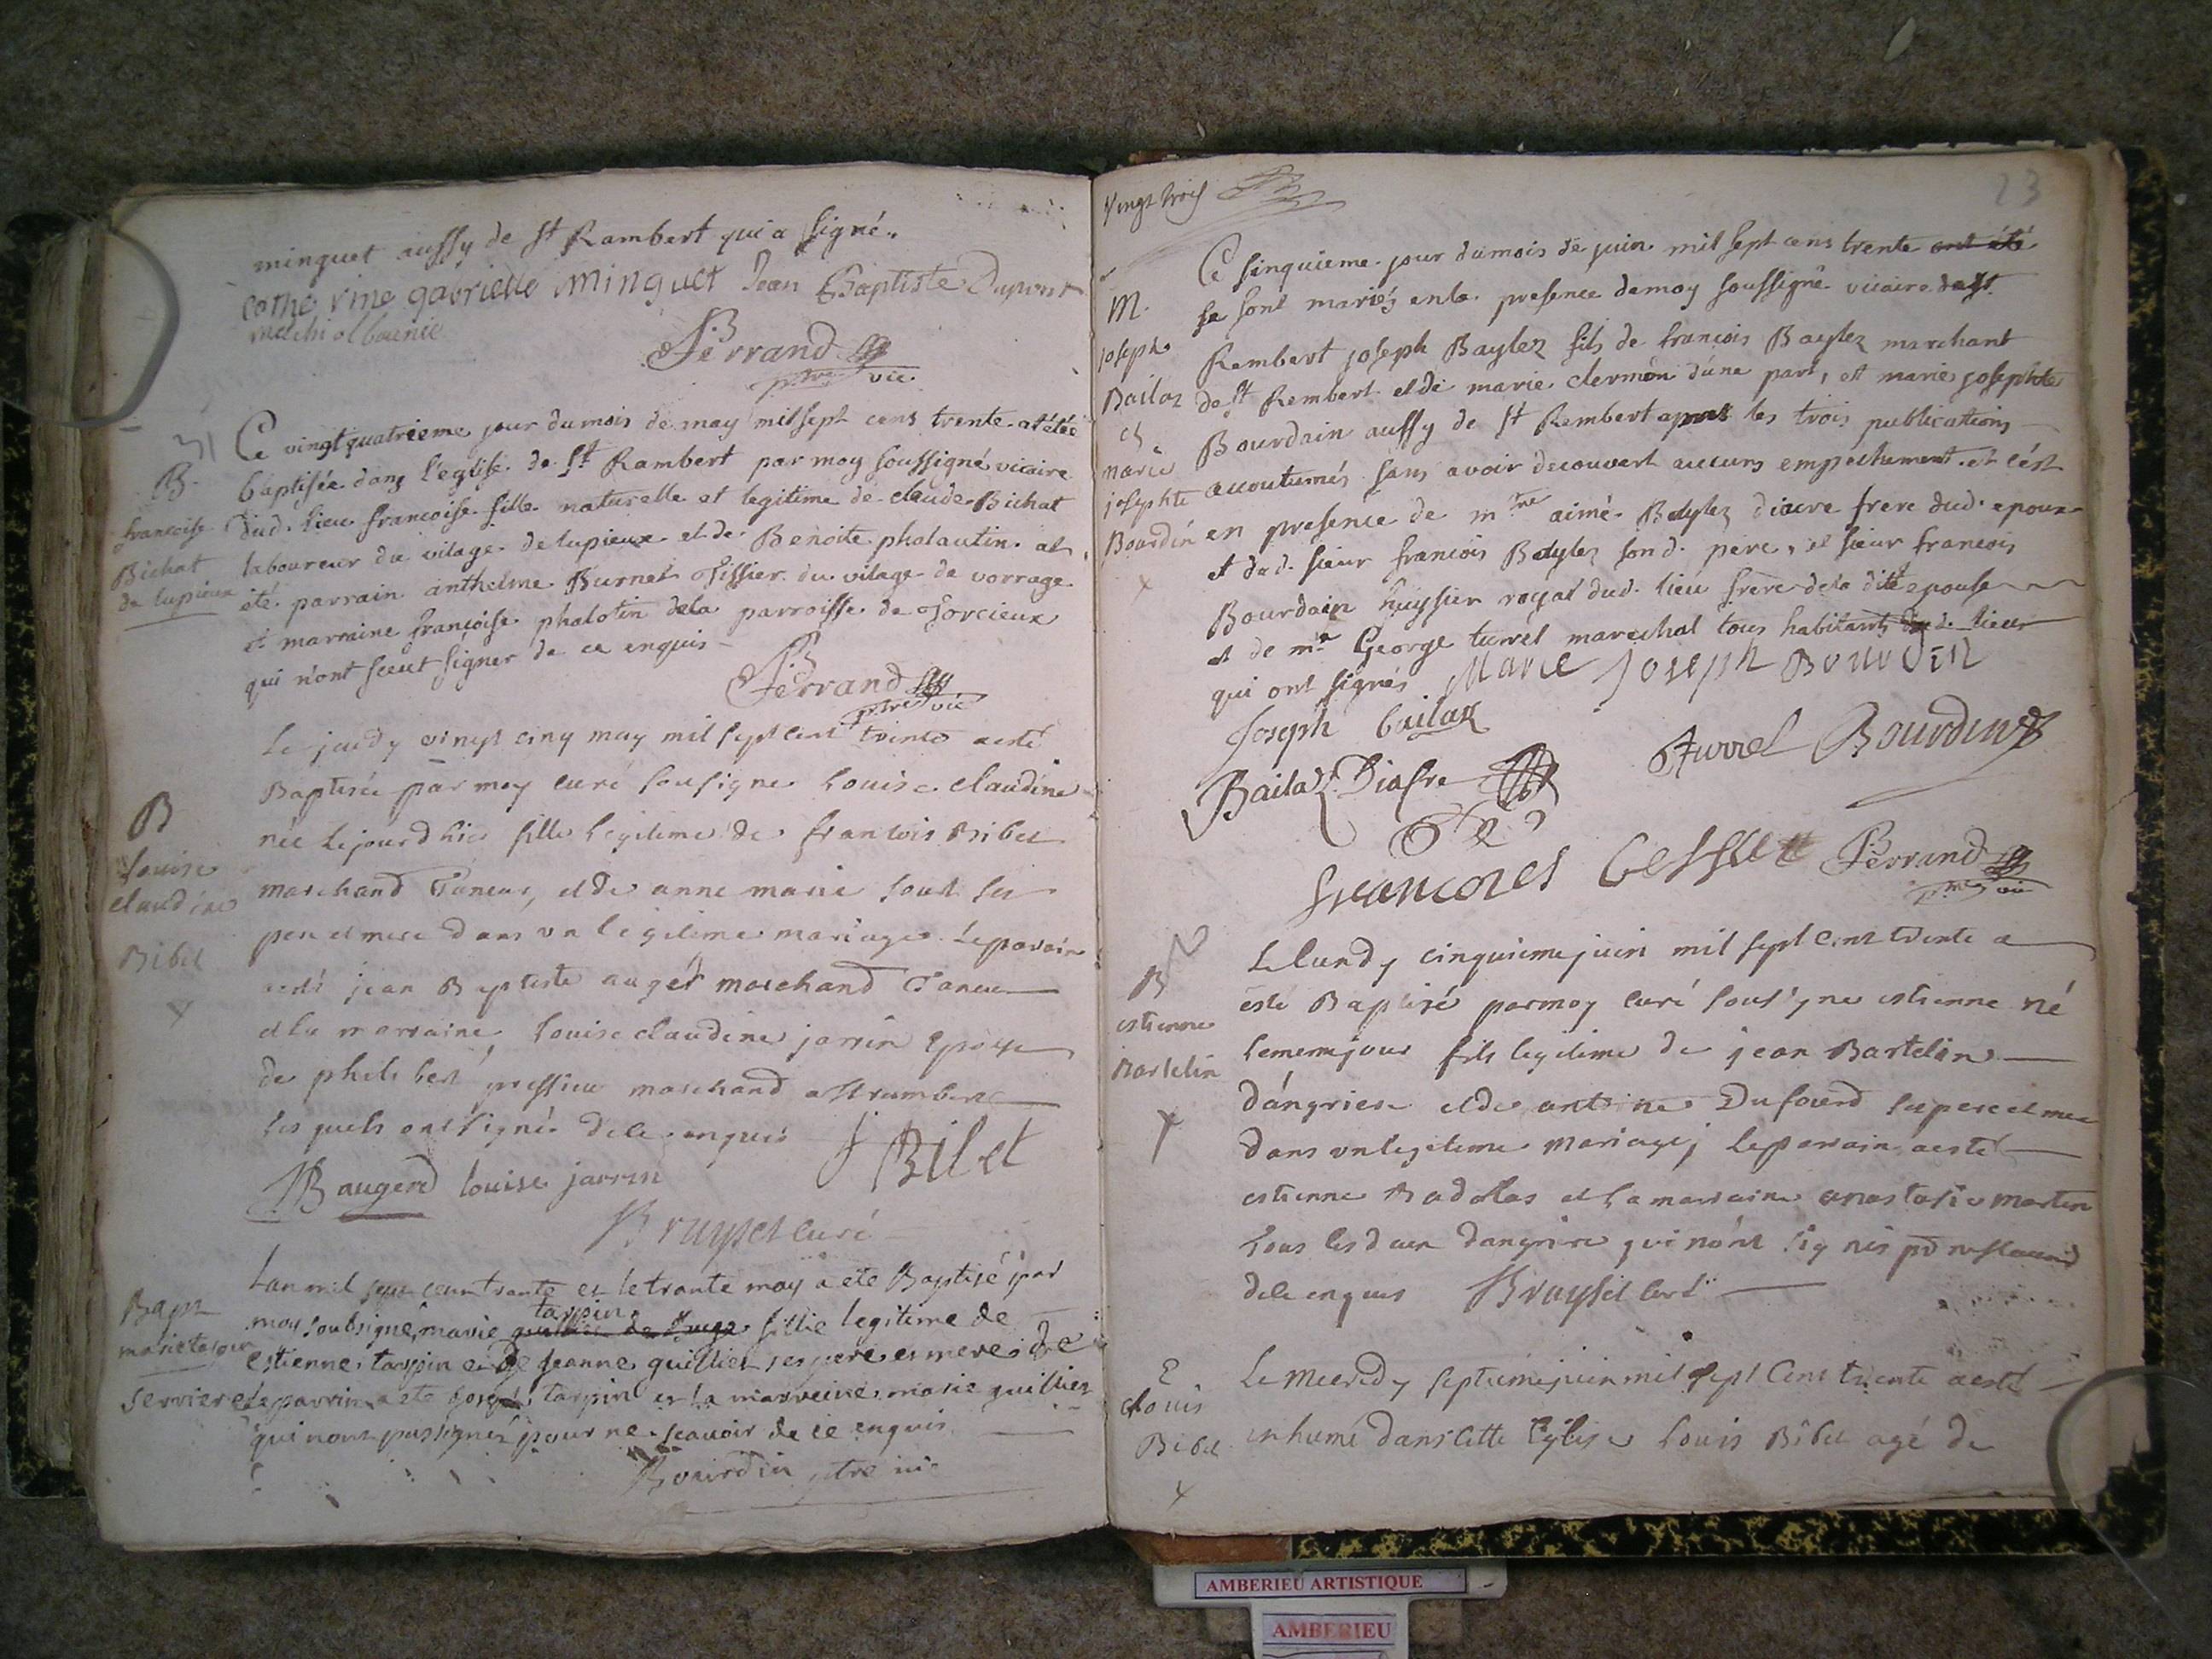 minguet aussy de st Rambert qui a signé.
cathe rine gabrielle minguet Jean Baptiste Dupont
Ferrand
ptre vic
31
B.
francoise
Bichat
de lupieux
Ce vingt quatrieme jour du mois de may mil sept cens trente at étée
baptisée dans l'eglise de St Rambert par moy soussigné vicaire
dud. lieu francoise fille naturelle et legitime de claude Bichat
laboureur du vilage de lupieux et de Benoite phalautin at
été parrain anthelme Burnet tissier du vilage de vorrage
et marraine françoise phalotin dela parroisse de Torcieux
qui n'ont sceut signer de ce enquis
Ferrand
ptre vic
B
louise
claudine
Bibet
Le jeudy vingt cinq may mil sept cent trente a esté
Baptisée par moy curé sousigne Louise claudine
née le jour d hier fille legitime de francois Bibet
marchand Taneur, et de anne marie
pere et mere dans un legitime mariage. Le parain
a esté jean Baptiste auger marchand Taneur
et la marraine Louise claudine jarrin Epouse
de philibert pressieu marchand a st rambert
lesquels ont signé de ce enquis
J Bibet
JB augerd louise jarrin
Bruyset curé
Bapt
marie tarpin
serriere
Lan mil sept cent trante et le trante may a ete Baptisé par
moy soubsigné, marie tarpin fillie legitime de
estienne tarpin et de Jeanne guillier ses pere et mere de
le parrin a ete joseph tarpin et la marreine marie guillier
qui n'ont pas signés pour ne scauoir de ce enquis
Bourdin ptre vic
vingt trois
23
M.
joseph
Bailaz
et
marie
josephte
Bourdin
Ce sinquieme jour du mois de juin mil sept cens trente ont été
se sont mariés en la presence de moy soussigné vicaire de st
Rembert joseph Baylez fils de francois Baylez marchant
de st Rembert et de marie clermon d'une part, et marie josephte
Bourdain aussy de St Rembert apres les trois publications
accoutumés sans avoir decouvert aucuns empechement et c'ést
en presence de mtre aimé Baylez diacre frere dud. epoux
et dud. sieur francois Baylez son d. pere, et sieur francois
Bourdain huyssier royal dud. lieu frère de la dite epouse
et de mre George turrel marechal tous habitants dud. lieu
qui ont signés Marie Joseph Bourdin
Joseph bailaz
Bailaz Diacre
Turrel Bourdin
francoies
Ferrand
ptre vic
B
estienne
Bartelin
Le lundy cinquieme juin mil sept cent trente a
esté Baptisé par moy curé sousigne estienne né
le meme jour fils legitime de jean Bartelin
d'angriere et de antoine Dufourd ses pere et mere
dans un legitime mariage; le parain a esté
estienne Badollas et la marraine anastasie martin
tous les deux dangriere qui n'ont signés
de ce enquis Bruyset curé
E
Louis
Bibet
Le mecredy septieme juin mil sept Cent trente a esté
inhumé dans cette Eglise Louis Bibet agé de
AMBERIEU ARTISTIQUE
AMBERIEU